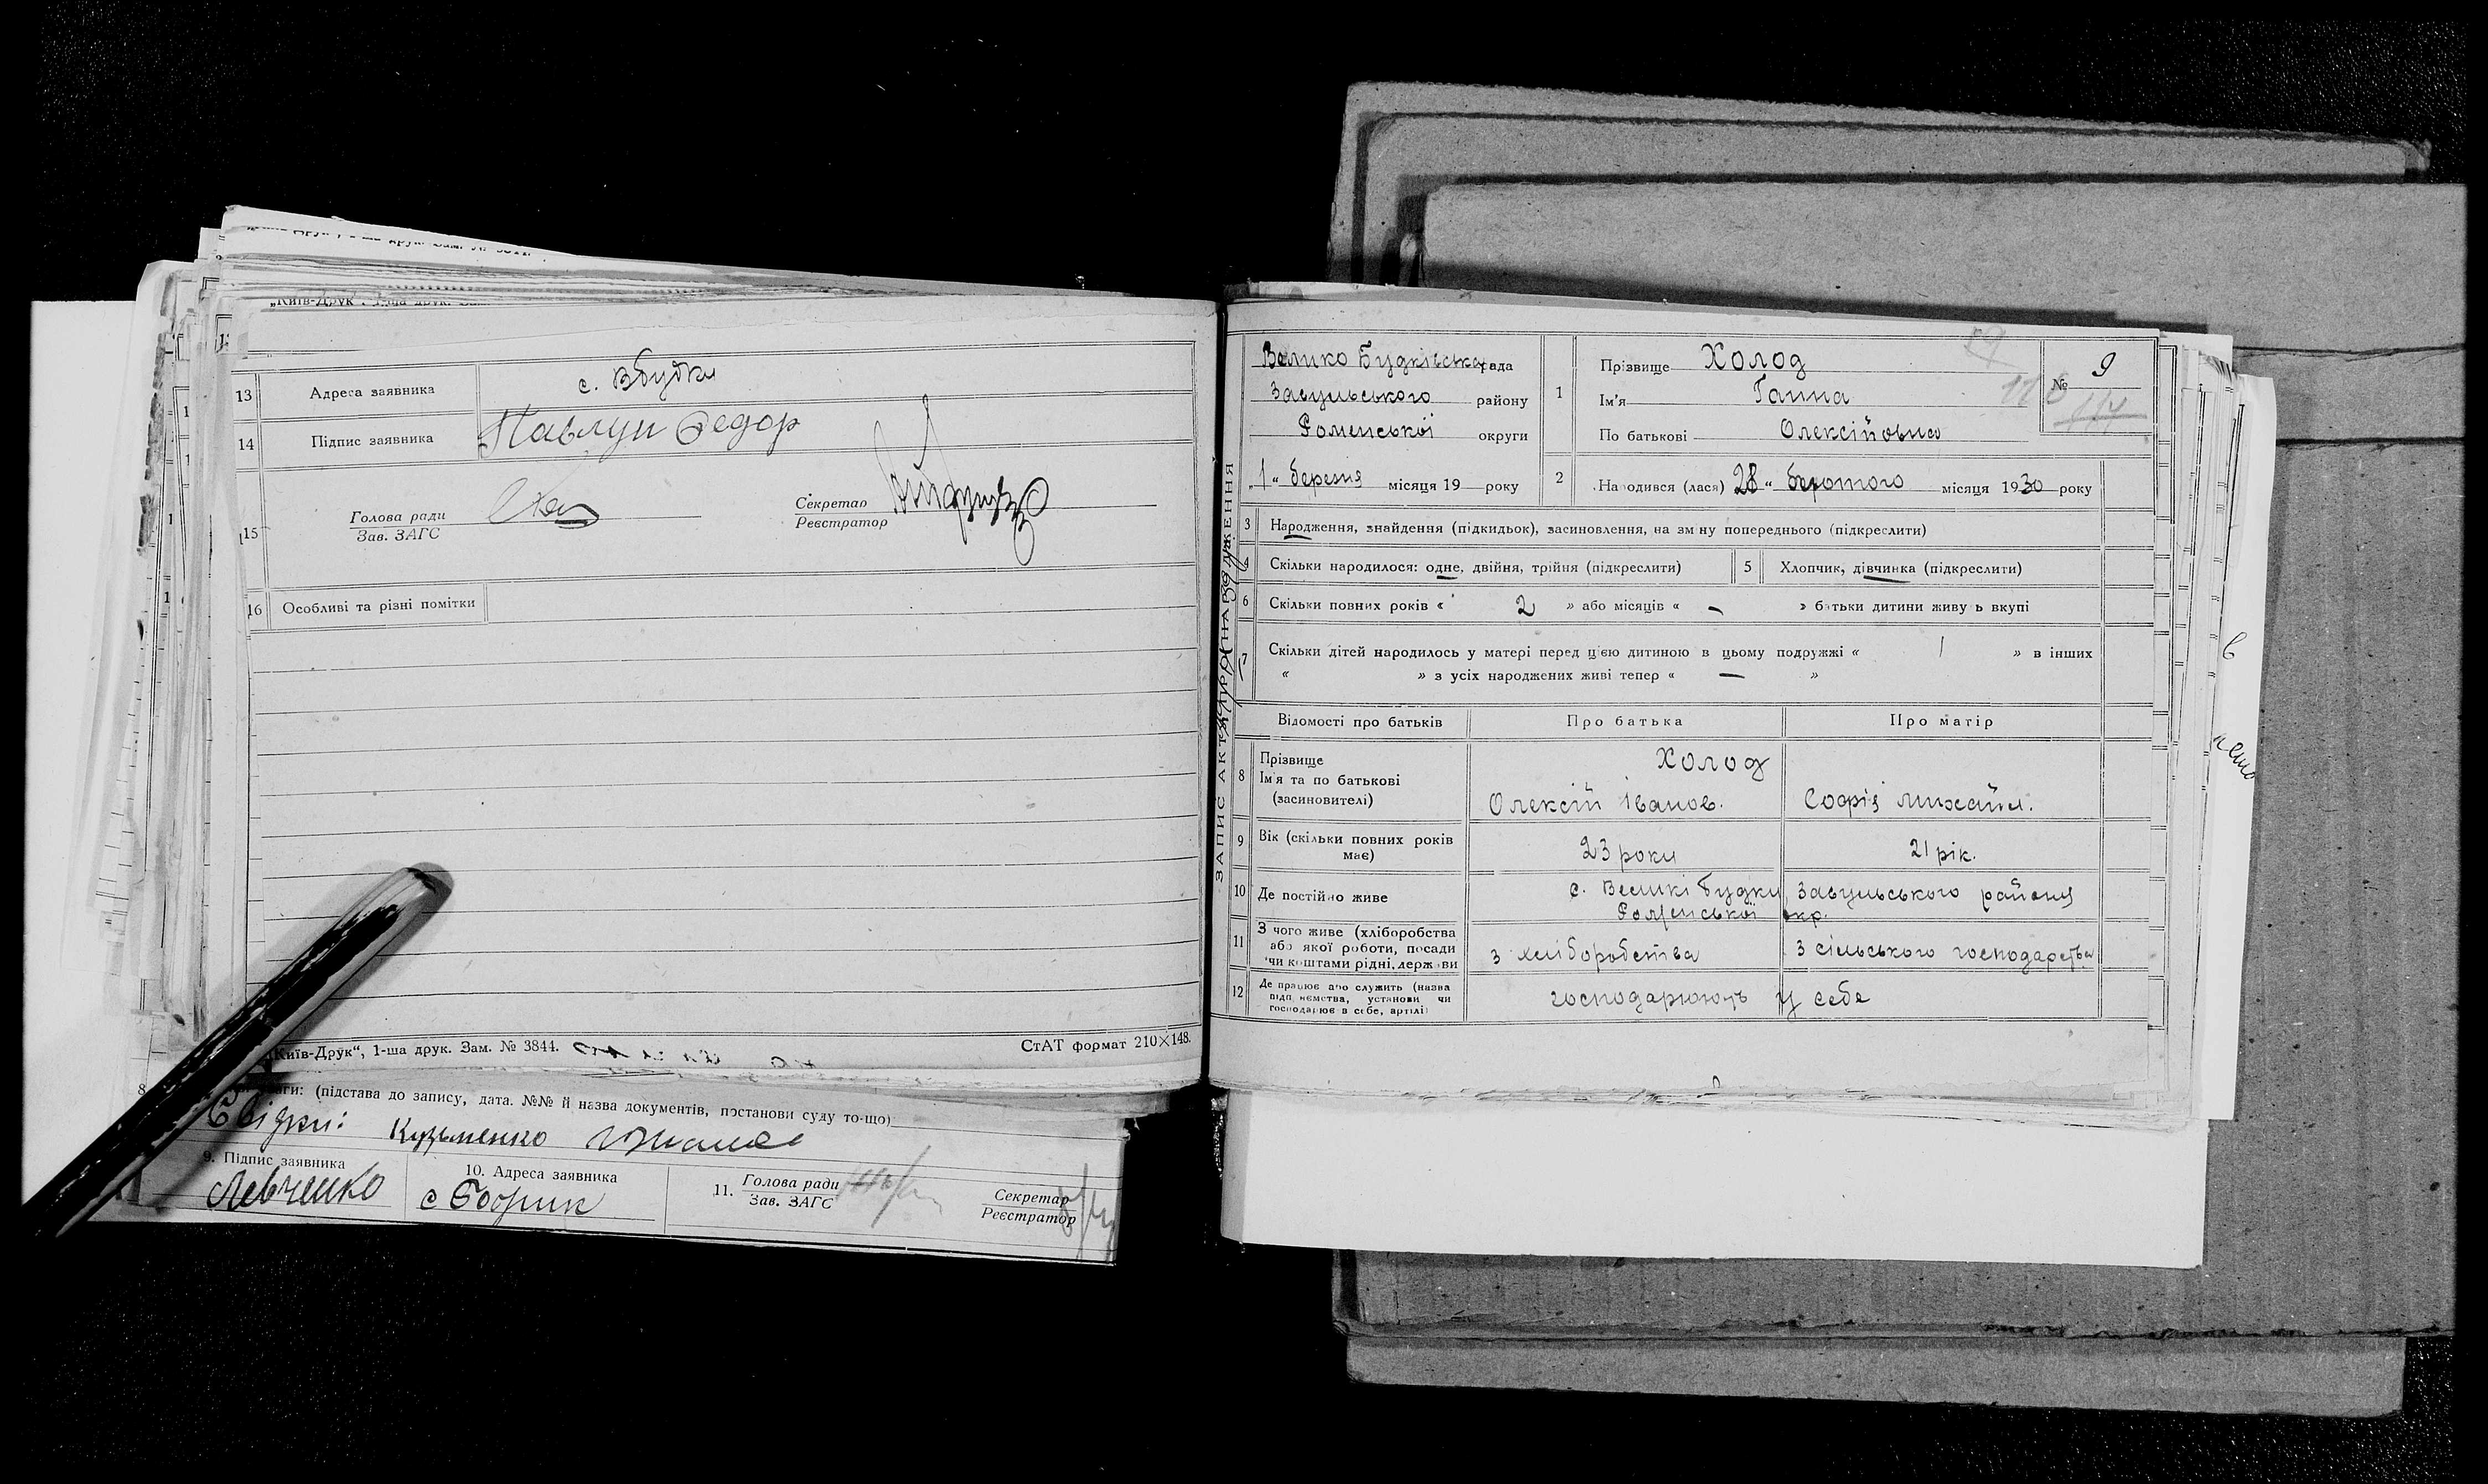 „Київ-Друк", 1-ша друк.
13 Адреса заявника с. Вбудки
14 Підпис заявника Павлун Федор
15 Голова ради
Зав. ЗАГС
Секретар
Реєстратор
16 Особливі та різні помітки
„Київ-Друк“, 1-ша друк. Зам. № 3844. СтАТ формат 210×148.
8 (підстава до запису, дата. №№ й назва документів, постанови суду то-що)
Свідки: Кузьменко
9. Підпис заявника 10. Адреса заявника 11. Голова ради
Зав. ЗАГС
Секретар
Реєстратор
Левченко с Бобрик
ЗАПИС АКТУ ПРО НАРОДЖЕННЯ
Велико Будківська рада
Засульського району
Роменської округи
„1“ березня місяця 19 року
1 Прізвище Холод
Ім'я Ганна
По батькові Олексійовна
№ 9
117
2 Народився (лася) 28 “ лютого місяця 1930 року
3 Народження, знайдення (підкидьок), засиновлення, на зміну попереднього (підкреслити)
4 Скільки народилося: одне, двійня, трійня (підкреслити) 5 Хлопчик, дівчинка (підкреслити)
6 Скільки повних років « 2 » або місяців « – » батьки дитини живуть вкупі
7 Скільки дітей народилось у матері перед цією дитиною в цьому подружжі « 1 » в інших
« » з усіх народжених живі тепер « — »
Відомості про батьків Про батька Про матір
8 Прізвище
Ім'я та по батькові
(засиновителі)
Холод
Олексій Іванов. Софія Михайл.
9 Вік (скільки повних років
має)
23 роки 21 рік.
10 Де постійно живе с. Великі Будки, Засульського району
Роменської окр.
11 З чого живе (хліборобства
або якої роботи, посади
чи коштами рідні, держави
з хліборобства з сільського господарства
12 Де працює або служить (назва
підприємства, установи чи
господарює в себе, артілі)
господарюють у себе